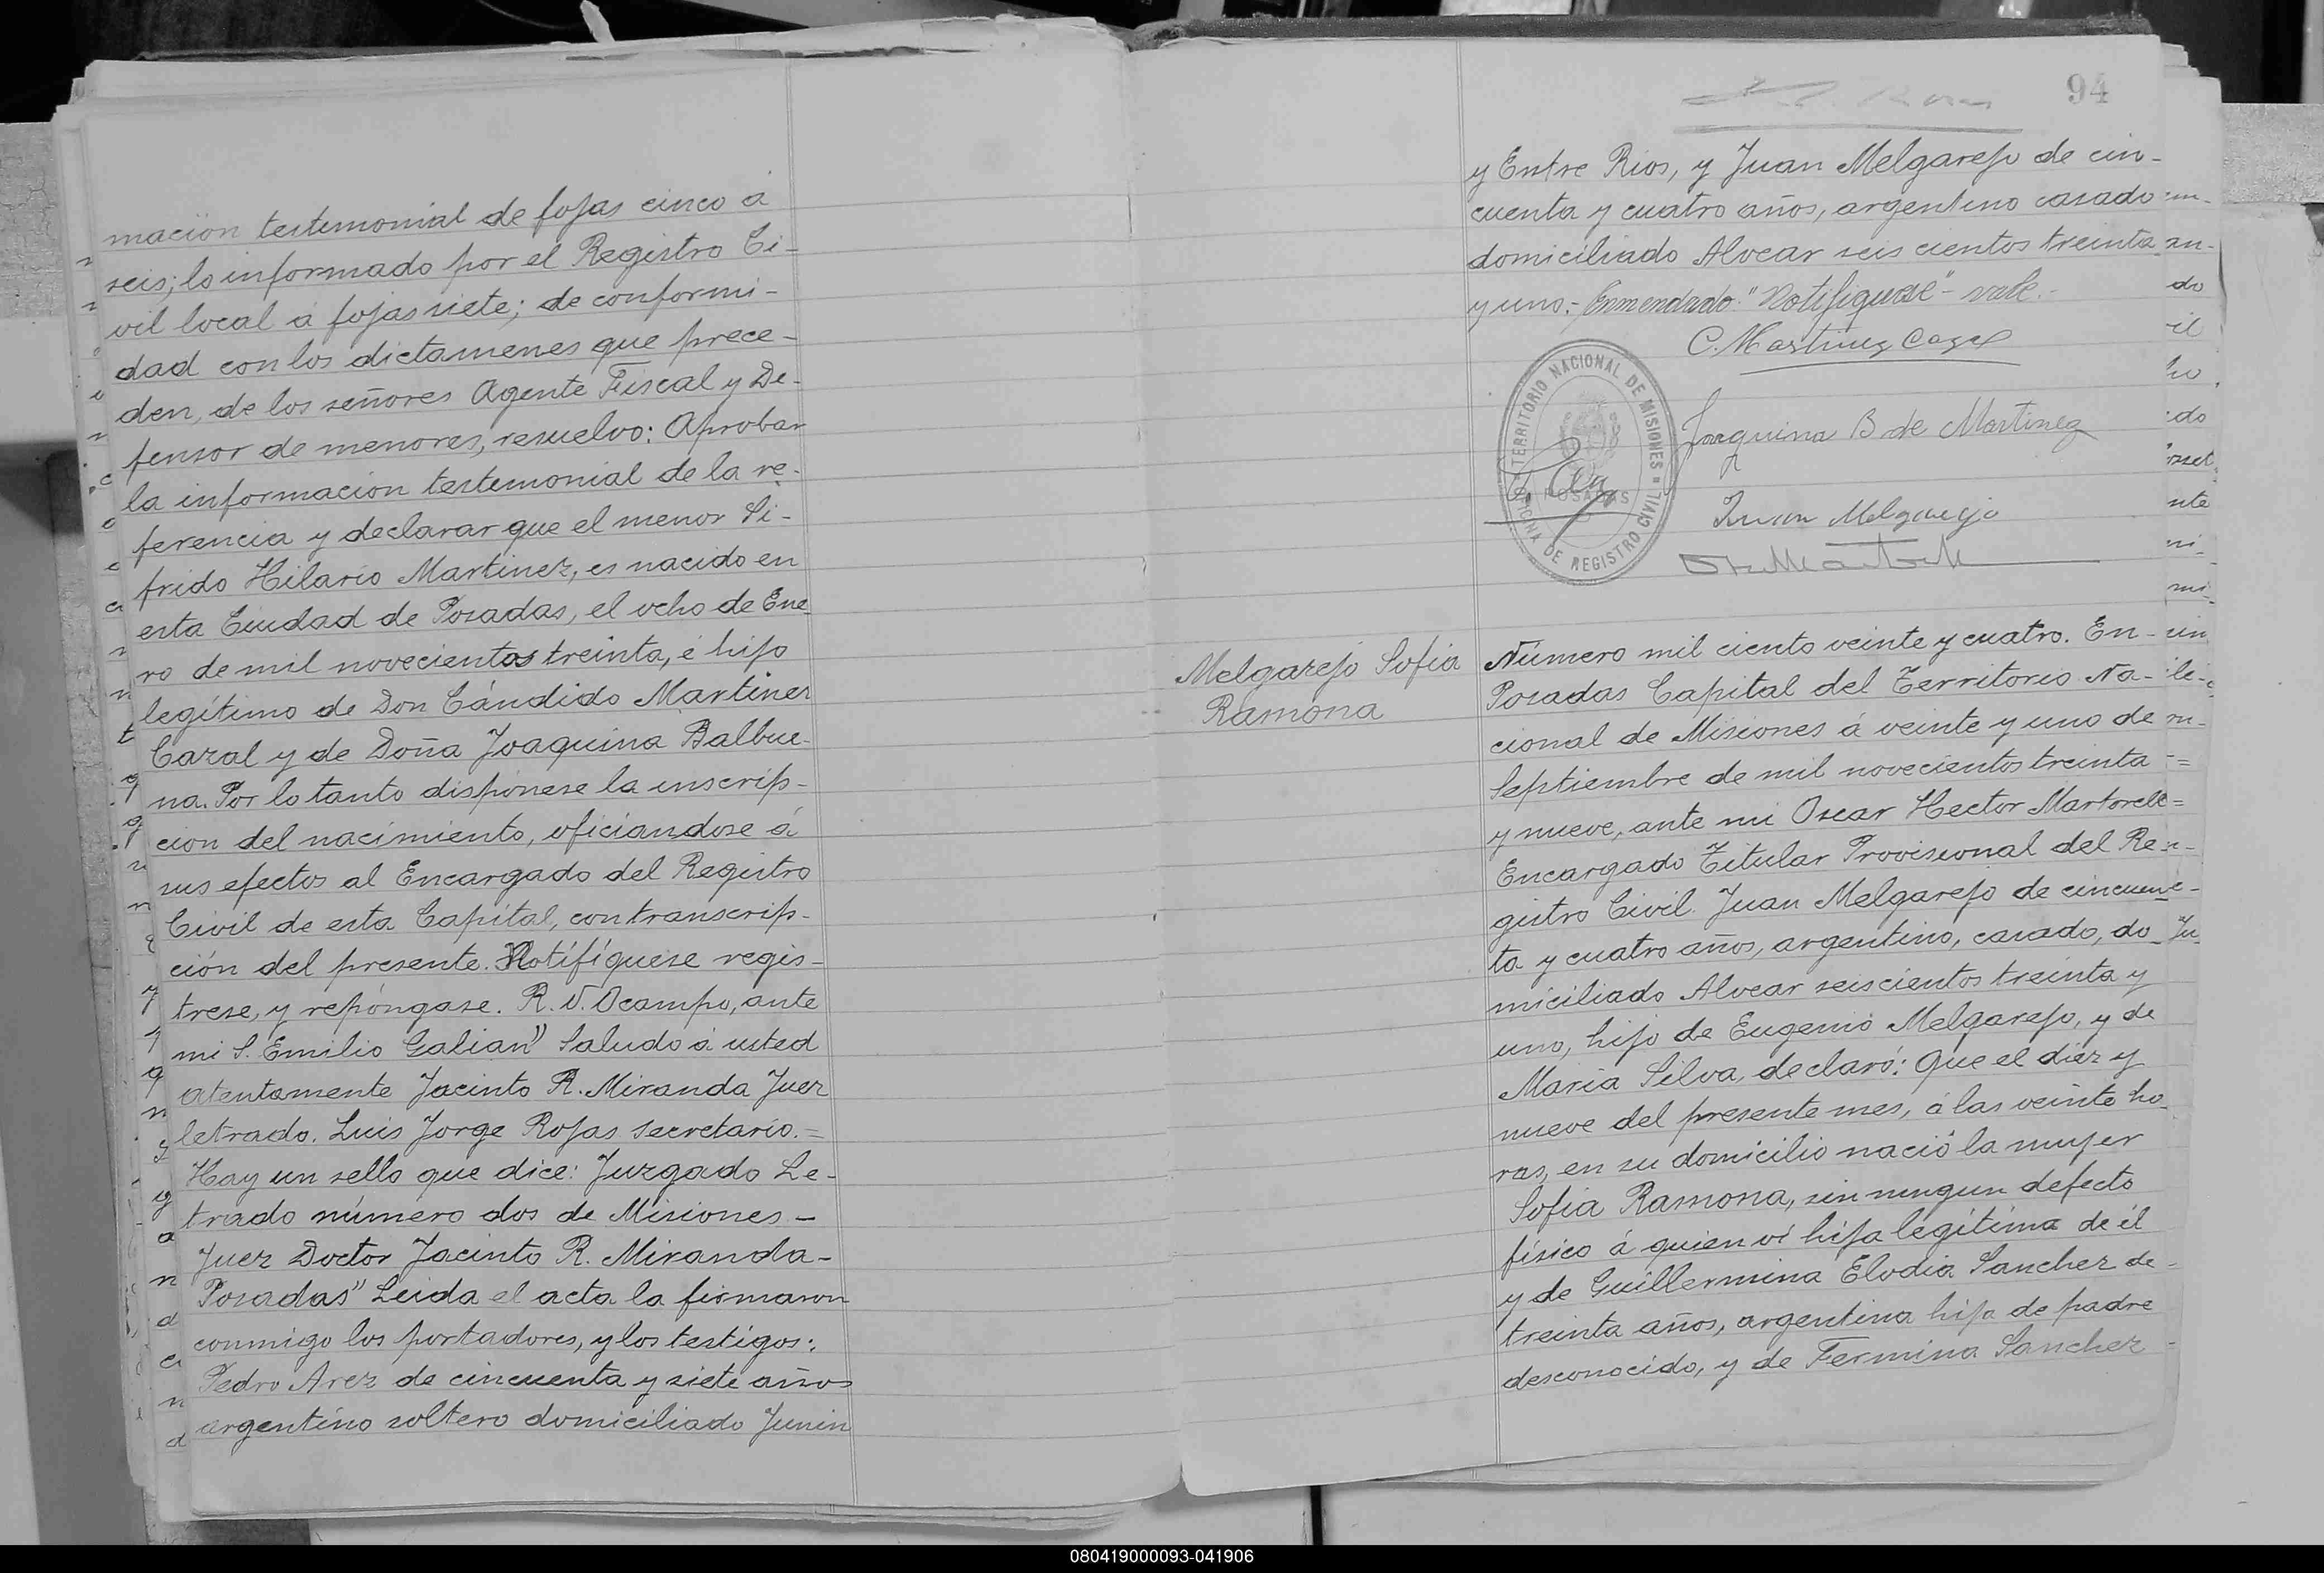 mación testimonial de fojas cinco á
seis; lo informado por el Registro Ci-
vil local á fojas siete; de conformi-
dad con los dictamenes que prece-
den, de los señores Agente Fiscal y De-
fensor de menores, resuelvo: Aprobar
la información testimonial de la re-
ferencia y declarar que el menor Si-
frido Hilario Martinez, es nacido en
esta Ciudad de Posadas, el ocho de Ene
ro de mil novecientos treinta, é hijo
legítimo de Don Cándido Martinez
Cazal y de Doña Joaquina Balbue-
na. Por lo tanto disponese la inscrip-
cion del nacimiento, oficiandose á
sus efectos al Encargado del Registro
Civil de esta Capital, con transcrip-
ción del presente. Notífíquese regis-
trese, y repóngase. R. V. Ocampo, ante
mi S. Emilio Galian" Saludo á usted
atentamente Jacinto R. Miranda Juez
letrado. Luis Jorge Rojas secretario.=
Hay un sello que dice: Juzgado Le-
trado número dos de Misiones-
Juez Doctor Jacinto R. Miranda-
Posadas" Leida el acta la firmaron
conmigo los portadores, y los testigos:
Pedro Arez de cincuenta y siete años
argentino soltero domiciliado Junin
94
y Entre Rios, y Juan Melgarejo de cin-
cuenta y cuatro años, argentino casado
domiciliado Alvear seis cientos treinta
y uno.- Enmendado: "Notifiquese"- vale.-
C. Martinez Cazal
TERRITORIO NACIONAL DE MISIONES
OFICINA DE REGISTRO CIVIL
POSADAS
Joaquina B de Martinez
Juan Melgarejo
Melgarejo Sofia
Ramona
Número mil ciento veinte y cuatro. En-
Posadas Capital del Territorio Na-
cional de Misiones á veinte y uno de
Septiembre de mil novecientos treinta
y nueve, ante mi Oscar Hector Martorell
Encargado Titular Provisional del Re-
gistro Civil. Juan Melgarejo de cincuen-
ta y cuatro años, argentino, casado, do-
miciliado Alvear seiscientos treinta y
uno, hijo de Eugenio Melgarejo, y de
Maria Silva, declaró: Que el diez y
nueve del presente mes, á las veinte ho-
ras, en su domicilio nació la mujer
Sofia Ramona, sin ningun defecto
físico á quien vi hija legítima de él
y de Guillermina Elodia Sanchez de-
treinta años, argentina hija de padre
desconocido, y de Fermina Sanchez
080419000093-041906